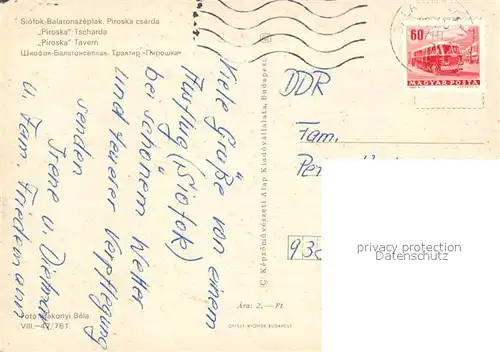 Siófok-Balatonszéplak. Piroska csárda
„Piroska" Tscharda
„Piroska" Tavern
Шиофок-Балатонсеплак. Трактир «Пирошка»
Viele Grüße von einem
Ausflug (Siofok)
bei schönem Wetter
und teurer Verpflegung
senden
Irene u. Dietmar
u. Fam. Friedemann
Foto: Bakonyi Béla
VIII.-47/761.
© Képzőművészeti Alap Kiadóvállalata, Budapest
Ára: 2.— Ft
OFFSET-NYOMDA BUDAPEST
60
MAGYAR POSTA
DDR
Fam.
930
privacy protection
Datenschutz